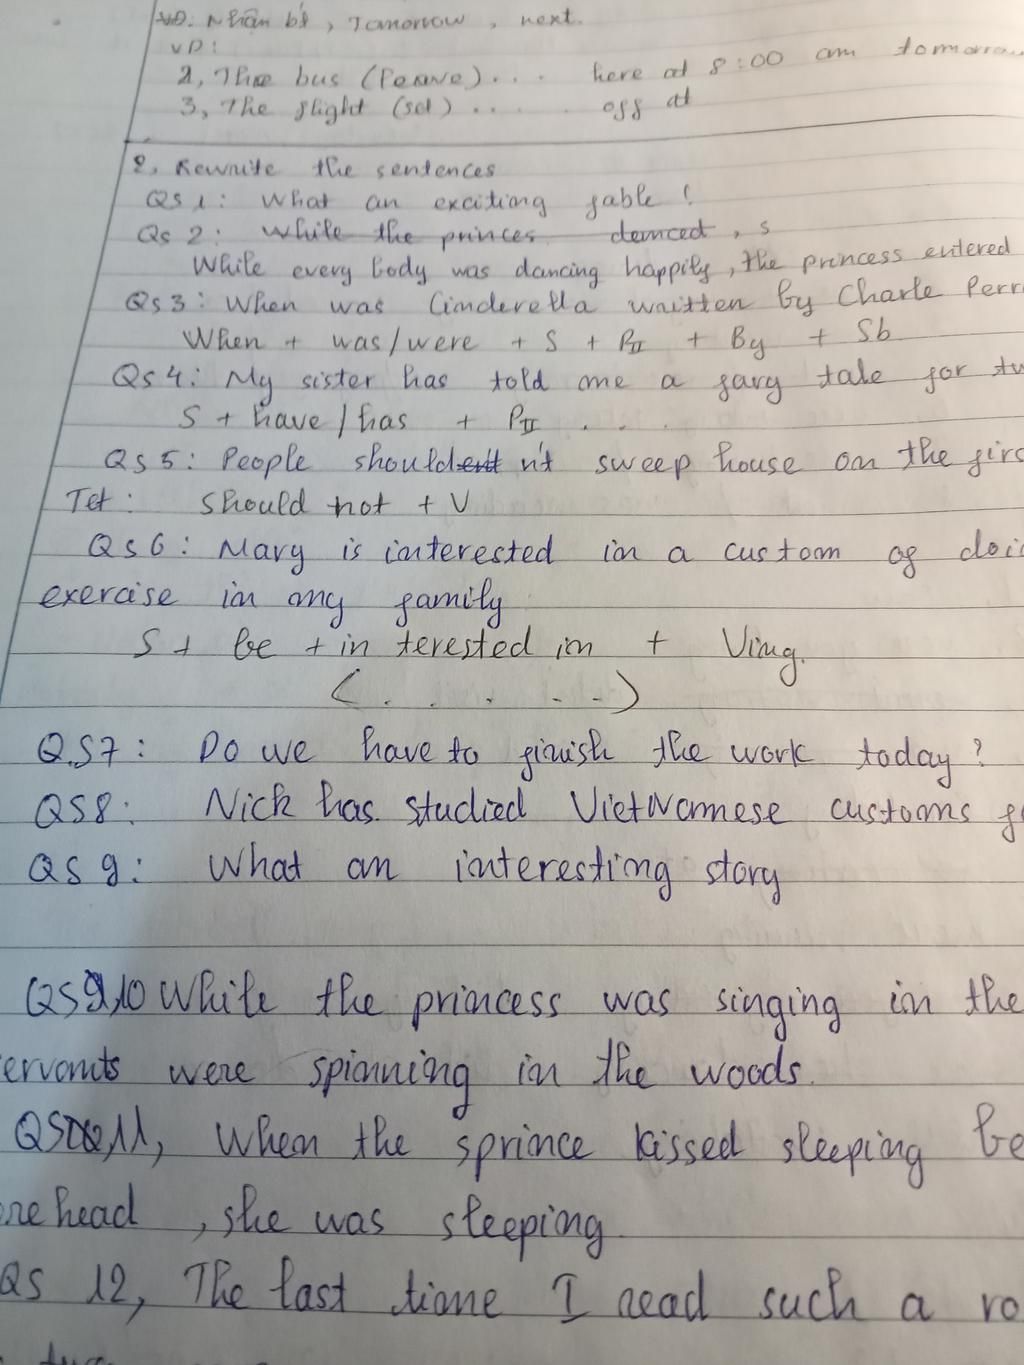 VD: Nhận bt, Tomorrow, next.
VD:
2, The bus (leave)... here at 8:00 am tomorrow
3, The flight (set)... off at
2, Rewrite the sentences
QS 1: What an exciting fable!
Qs 2: While the princes danced, s
While every body was dancing happily, the princess entered
Qs3: When was Cinderella written by Charle Perr
When + was/were + S + PII + By + Sb
Qs4: My sister has told me a fary tale for tw
S + have/has + PII . . .
Qs5: People shouldn't sweep house on the firs
Tet: Should not + V
Qs6: Mary is interested in a custom of doin
exercise in my family
S + be + in terested in + Ving.
(. . . . .)
QS7: Do we have to finish the work today?
QS8: Nick has studied VietNamese customs fo
QS 9: What an interesting story
QS 10 While the princess was singing in the
ervants were spinning in the woods.
QS 11, When the sprince kissed sleeping be
orehead, she was sleeping
QS 12, The last time I read such a ro